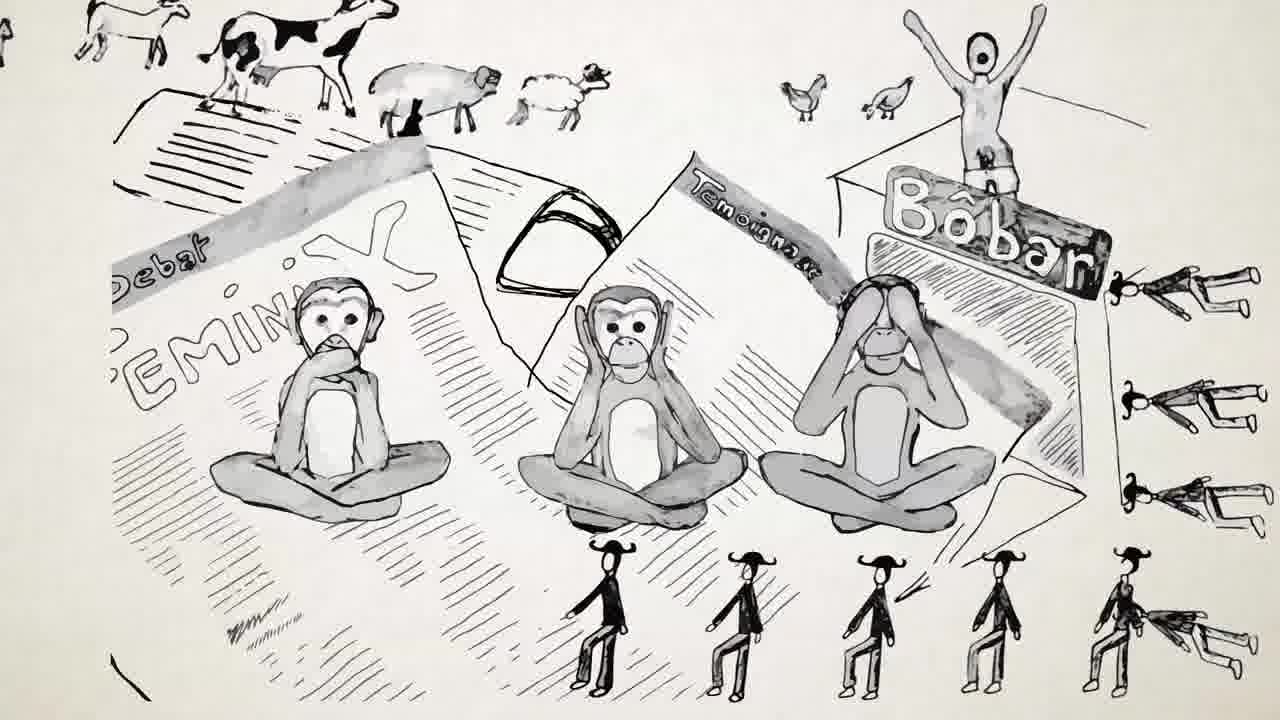 Debat
FEMiNiX
Temoignage
Bôbar